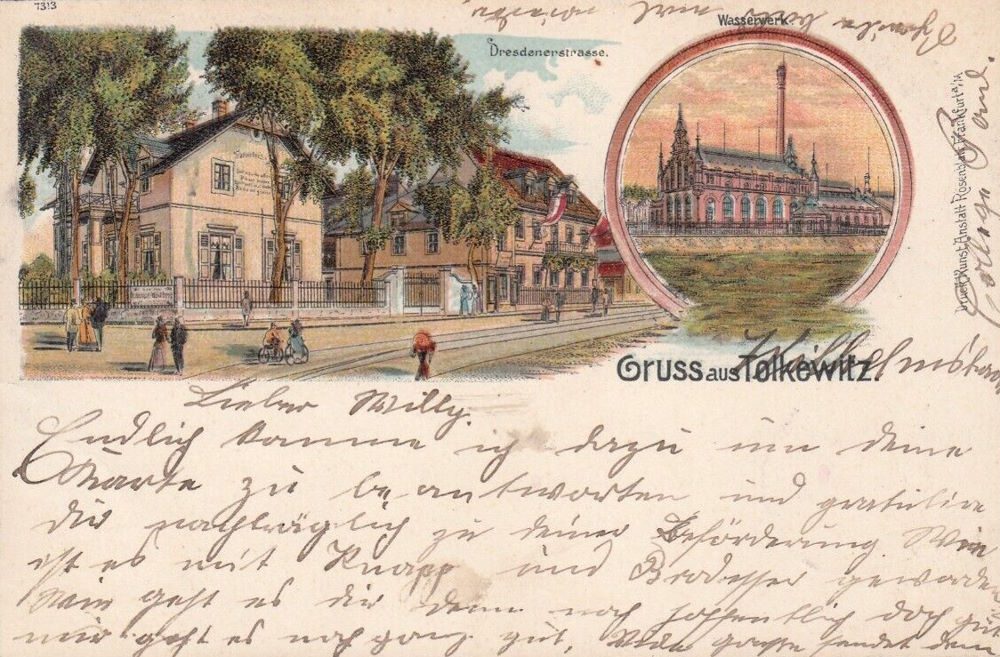 7313
Wasserwerk.
Dresdenerstrasse.
Druck Kunst-Anstalt Rosenblatt Frankfurt a/M
Gruss aus Tolkewitz.
Lieber Willy.
Endlich komme ich dazu um deine
Karte zu beantworten und gratulire
dir nachträglich zu deiner Beförderung. Wie
ist es mit Knapp und Brodesser geworden
Wie geht es dir denn noch hoffentlich doch gut
mir geht es noch ganz gut, Viele Grüße sendet dein